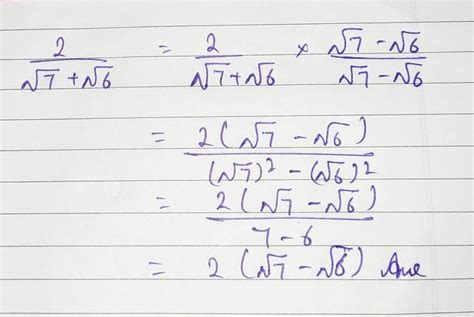 2/(√7 + √6) = 2/(√7 + √6) × (√7 − √6)/(√7 − √6)
= 2(√7 − √6)/((√7)² − (√6)²)
= 2(√7 − √6)/(7 − 6)
= 2(√7 − √6) Ans